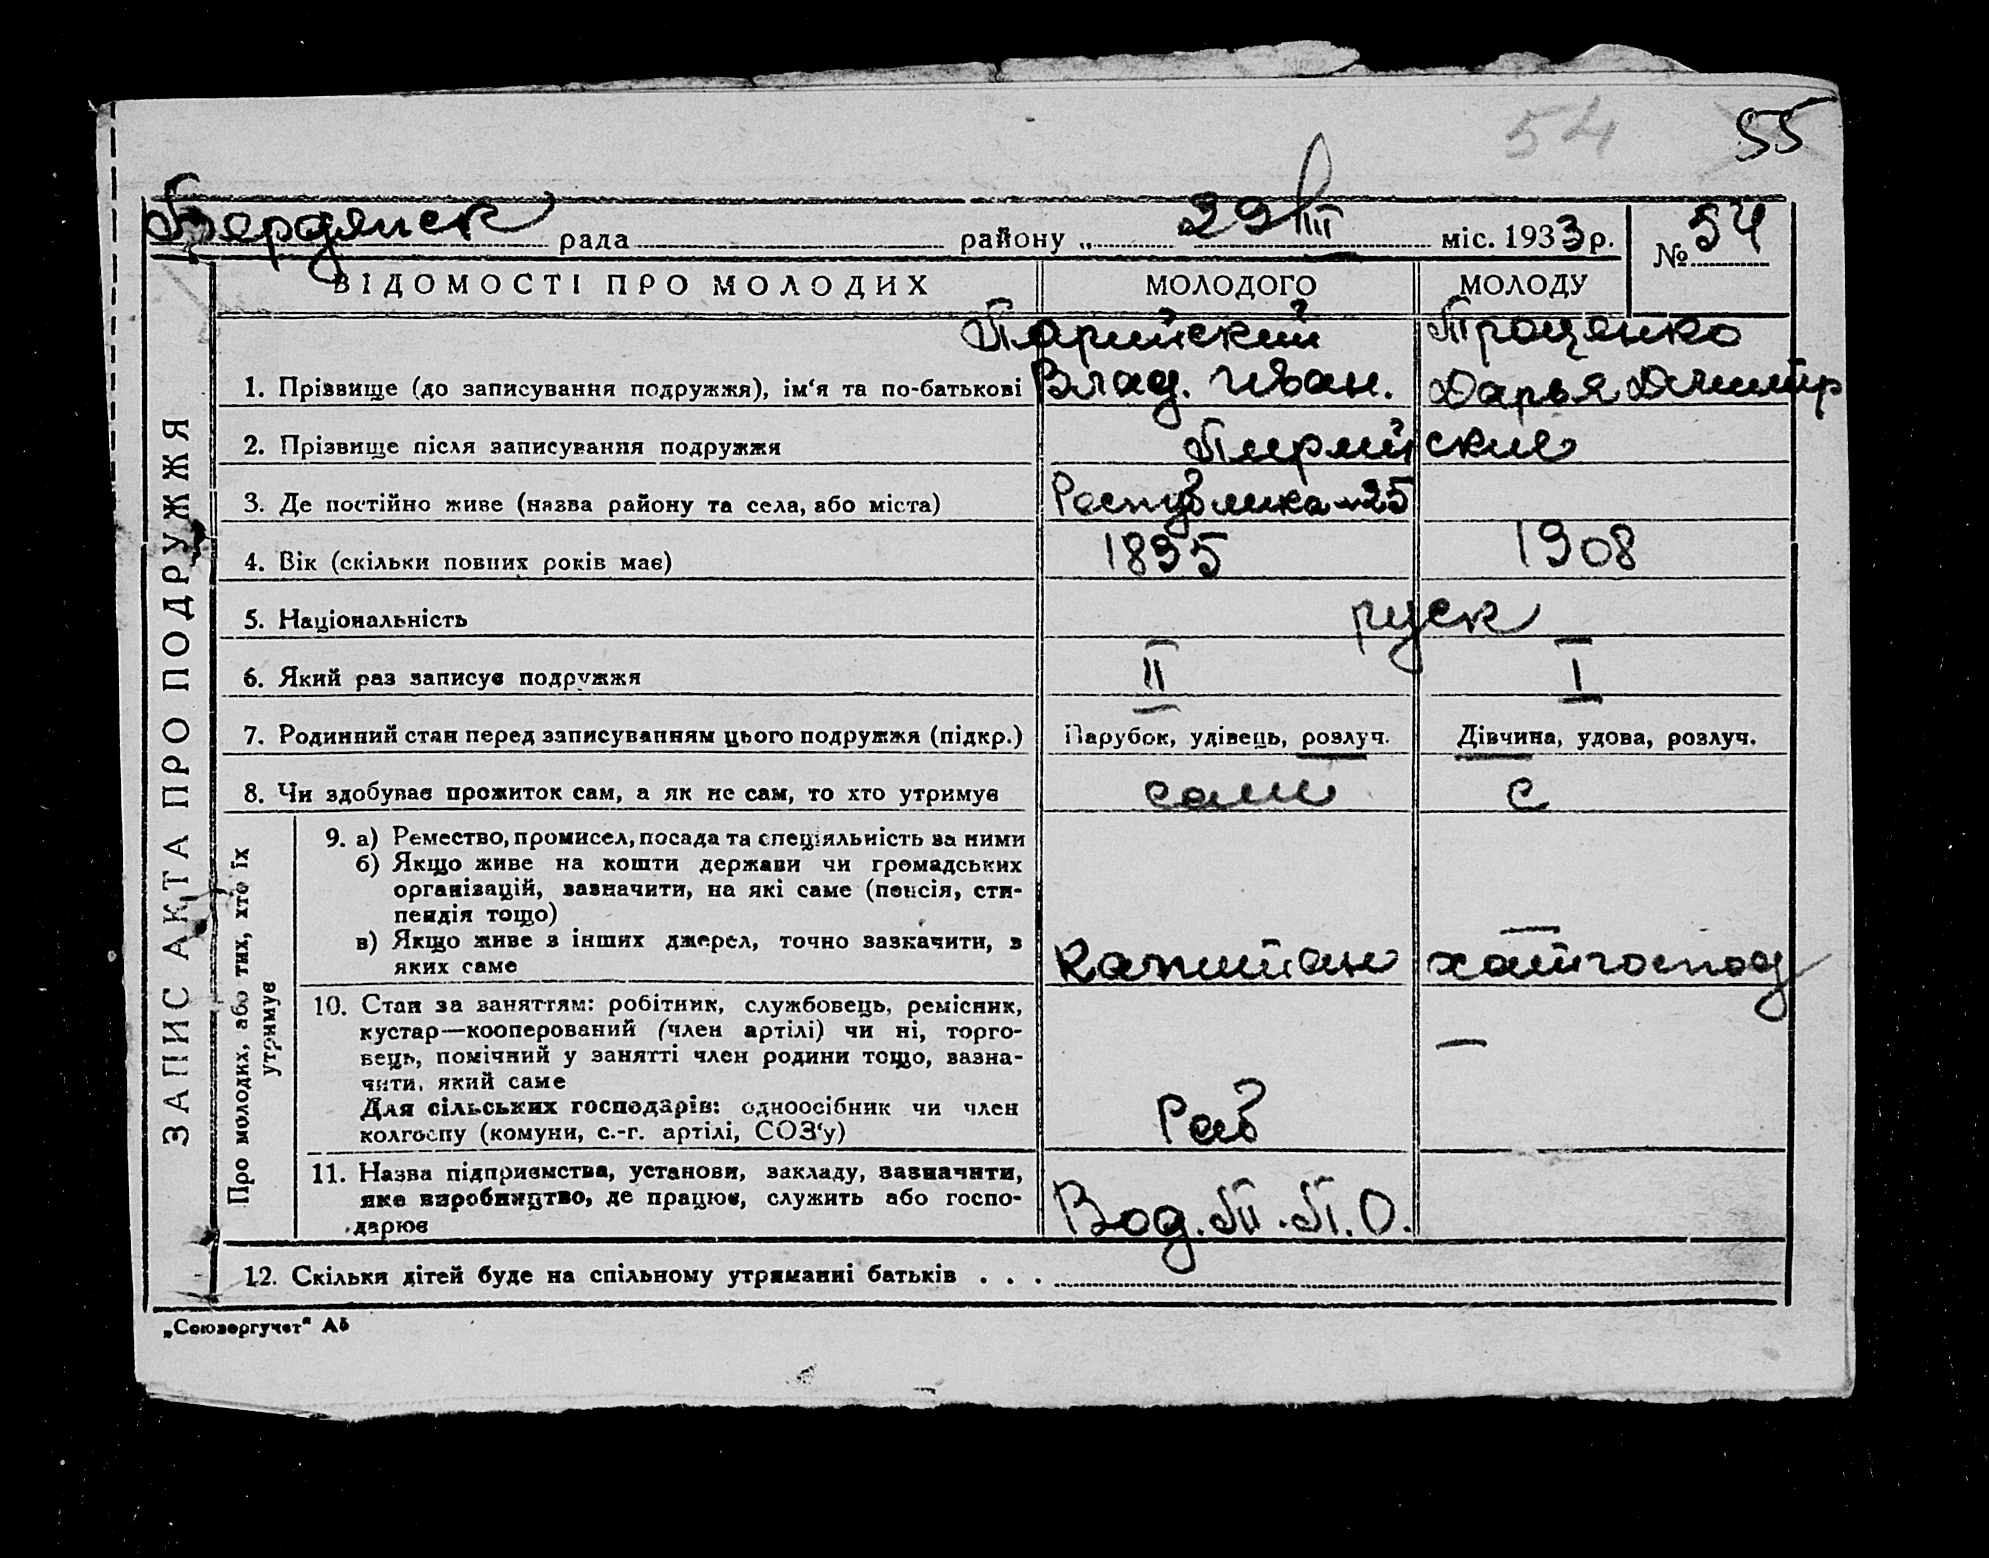 54
55
Бердянск рада района „ 29 III міс. 1933 р. № 54
ЗАПИС АКТА ПРО ПОДРУЖЖЯ
ВІДОМОСТІ ПРО МОЛОДИХ МОЛОДОГО МОЛОДУ
Парийский Троценко
1. Прізвище (до записування подружжя), ім‘я та по-батькові Влад. Иван. Дарья Дмитр
2. Прізвище після записування подружжя Парийские
3. Де постійно живе (назва району та села, або міста) Республика 25
4. Вік (скільки повних років має) 1895 1908
5. Національність руск
6. Який раз записує подружжя II I
7. Родинний стан перед записуванням цього подружжя (підкр.) Парубок, удівець, розлуч. Дівчина, удова, розлуч.
8. Чи здобуває прожиток сам, а як не сам, то хто утримує сами с
Про молодих, або тих, хто їх
утримує
9. а) Ремество, промисел, посада та спеціяльність за ними
б) Якщо живе на кошти держави чи громадських
організацій, зазначити, на які саме (пенсія, сти-
пендія тощо)
в) Якщо живе з інших джерел, точно зазначити, з
яких саме Капитан хатгоспод
10. Стан за заняттям: робітник, службовець, ремісник,
кустар—кооперований (член артілі) чи ні, торго-
вець, помічний у занятті член родини тощо, зазна-
чити, який саме —
Для сільських господарів: одноосібник чи член
колгоспу (комуни, с.-г. артілі, СОЗ‘у) Раб
11. Назва підприємства, установи, закладу, зазначити,
яке виробництво, де працює, служить або госпо-
дарює Вод. П. П. О.
12. Скільки дітей буде на спільному утриманні батьків . . .
„Союзоргучет“ Аб